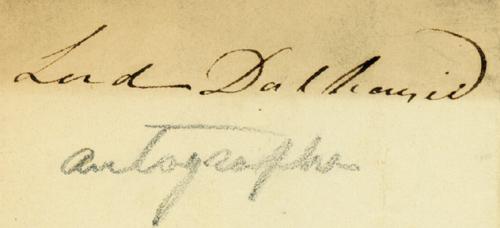 Lord Dalhousie
autographe